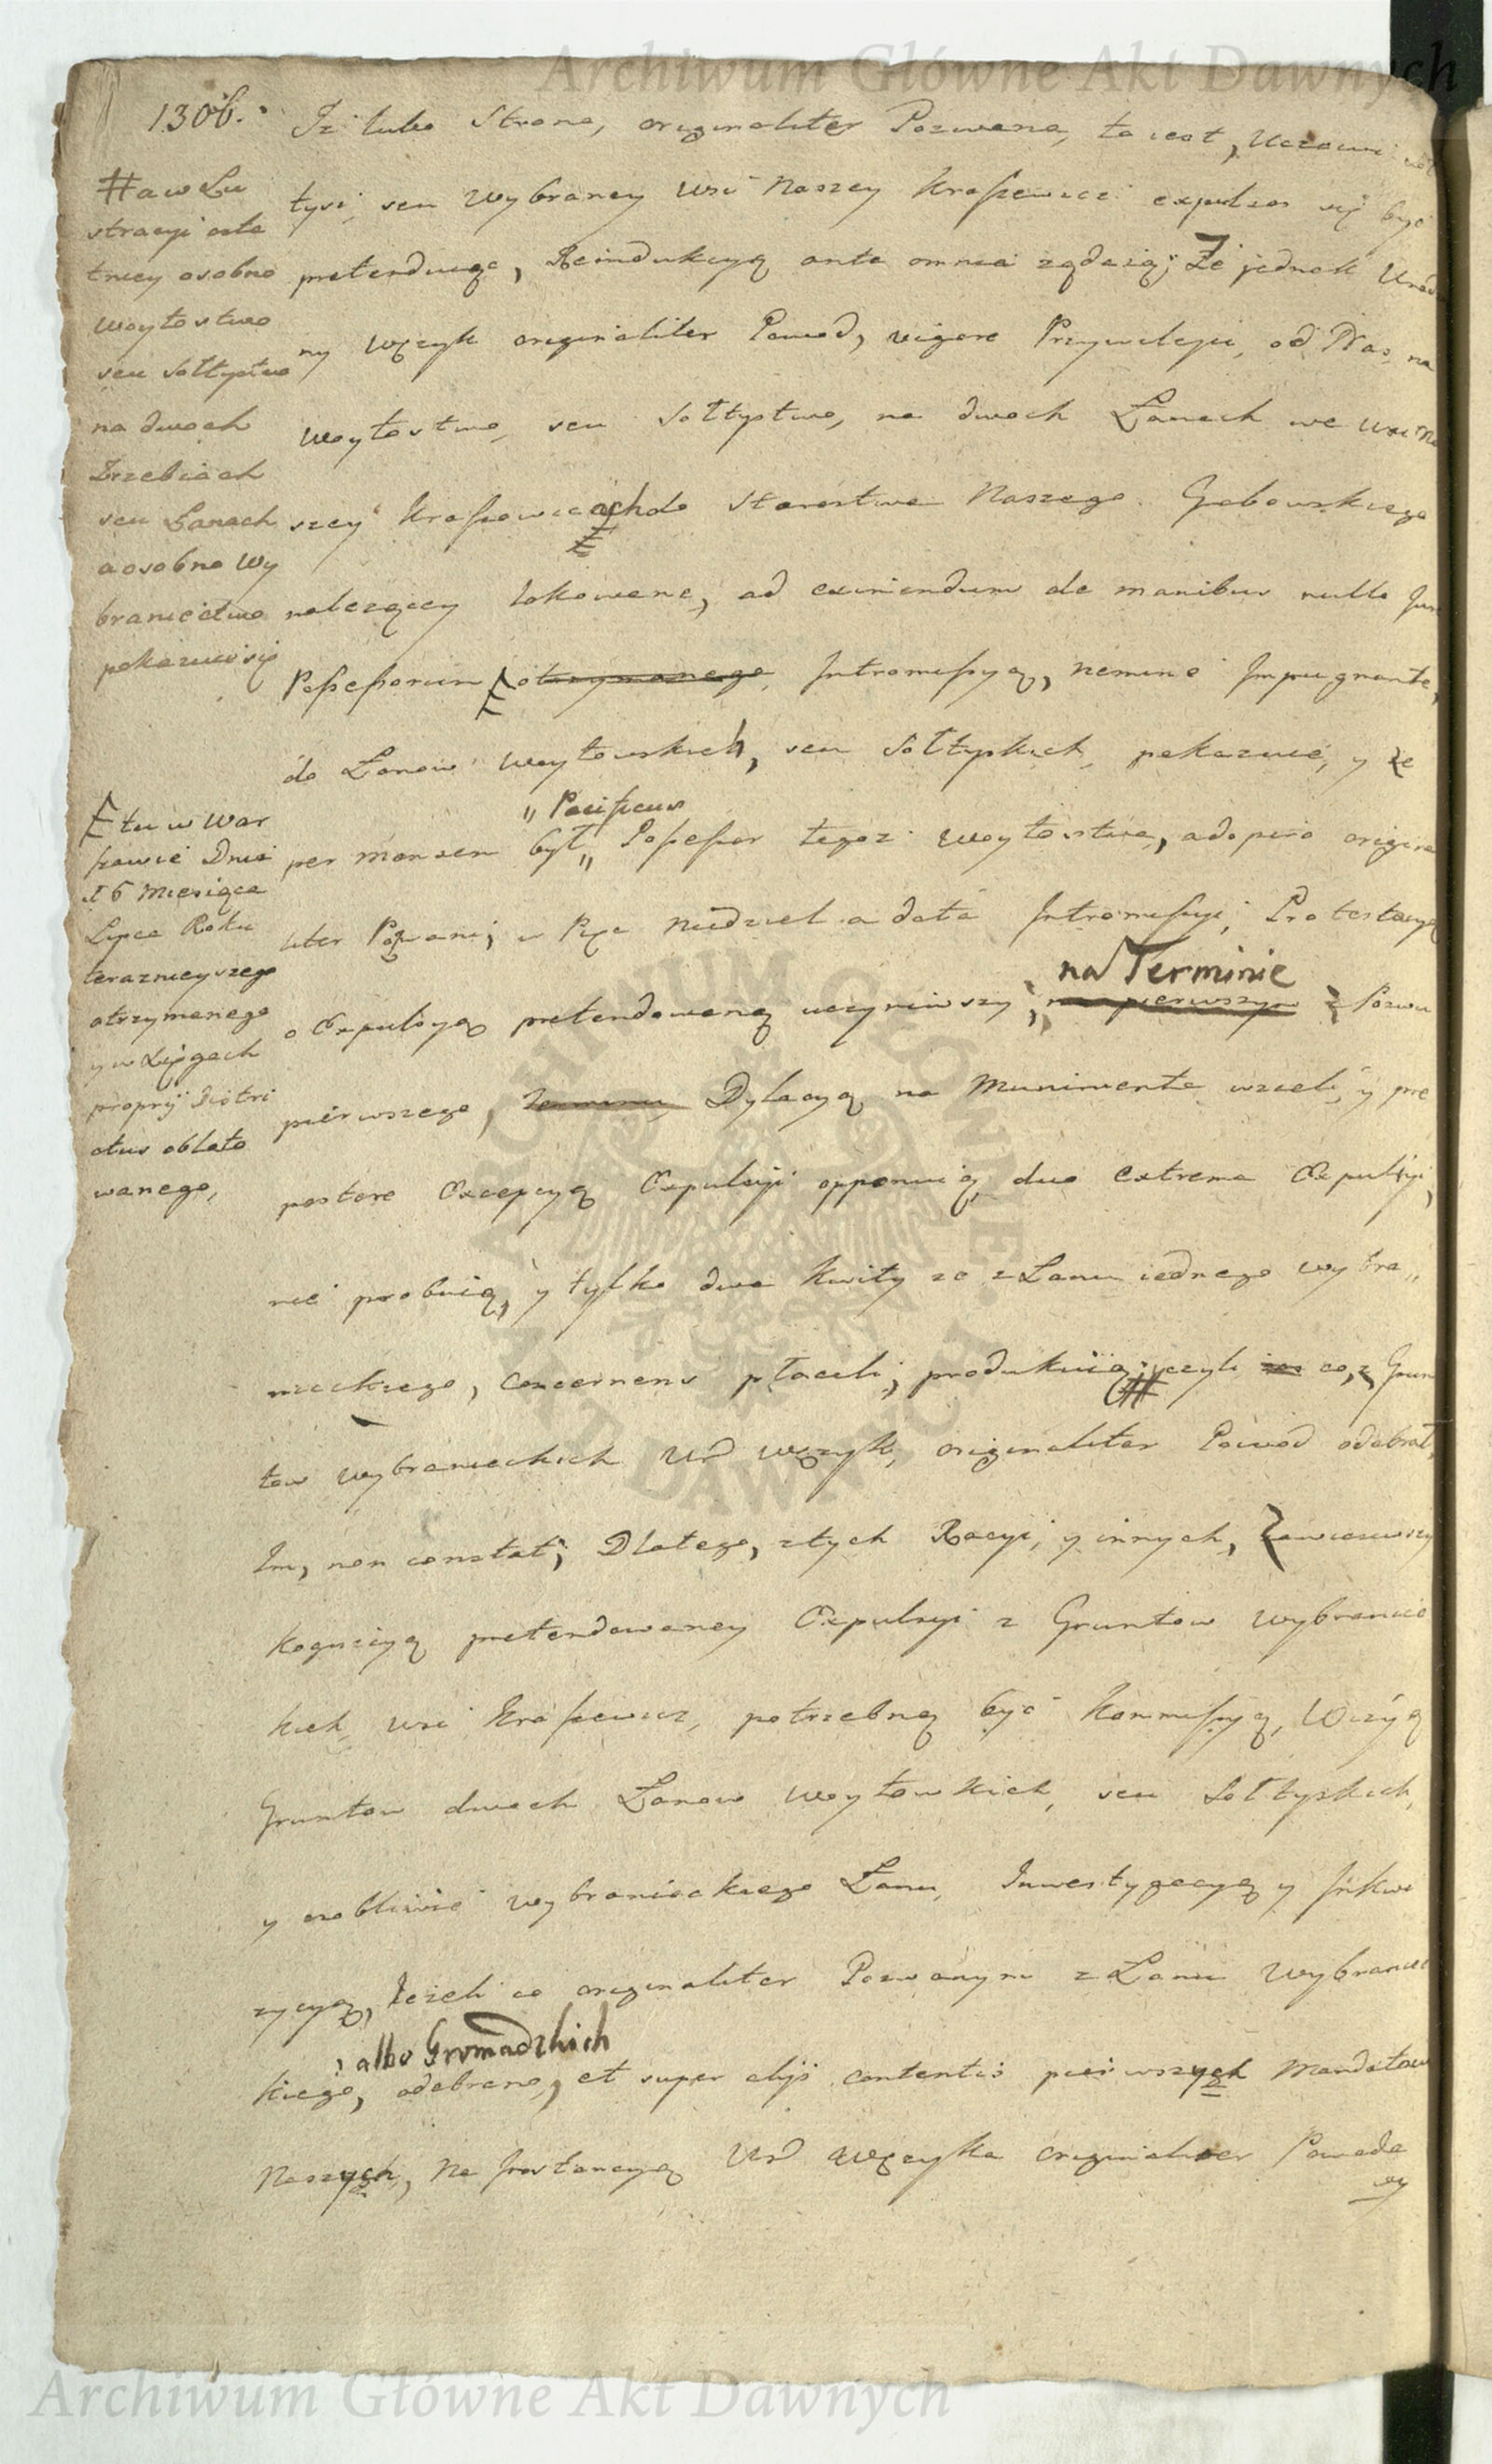 Archiwum Główne Akt Dawnych
1306.
Iż lubo Strona, originaliter Pozwana, to iest, Uczciwi Soł
tysi, seu Wybrancy Wsi Naszey Kraszewicz expulsos się być
pretenduiąc, Reindukcyą ante omnia żądaią; Że jednak Urodzo
ny Wężyk originaliter Powod, vigore Przywileju, od Nas, na
Woytostwo, seu Sołtystwo, na dwoch Łanach we Wsi Na
szey Kraszewicach do Starostwa Naszego Grabowskiego
należącey lokowane, ad eximiendum de manibus nullo Jure
Possessorum otrzymanego, Intromissyą, nemine Impugnante,
do Łanow Woytowskich, seu Sołtyskich, pokazuie, y że
„ Pacificus
per mensem był „ Possessor tegoż Woytostwa, a dopiro origina
liter Pozwani, w Pięć Niedziel a data Intromissyi, Protestacyą
na Terminie
o Expulsyą pretendowaną uczyniwszy; na pierwszym z Pozwu
pierwszego, Terminu, Dylacyą na Munimenta wzieli, y pre
postere Excepcyą Expulsyi opponuią, duo extrema Expulsyi,
nie probuią, y tylko dwa Kwity że z Łanu iednego wybra„
nieckiego, concernens płacili, produkuią; czyli zas co, z Grun
tow wybranieckich Ur Wężyk, originaliter Powod odebrał,
Im, non constat; Dlatego, z tych Racyi, y innych, Zawiesiwszy
Kognicyą pretendowaney Expulsyi z Gruntow Wybraniec
kich, wsi Kraszewicz, potrzebną być Kommissyą, Wizyą
Gruntow dwoch Łanow Woytowskich, seu Sołtyskich,
y osobliwie wybranieckiego Łanu, Inwestygacyą y Inkwi
zycyą, Ieżeli co originaliter Pozwanym z Łanu Wybraniec
albo Gromadzkich
kiego, odebrano, et super alijs contentis pierwszych Mandatow
Naszych, na Instancyą Ur Wężyka originaliter Powoda
wy
# a w Lu
stracyi osta
tniey osobno
Woytostwo
seu Sołtystwo
na dwoch
Zrzebiach
seu Łanach
a osobno Wy
braniectwo
pokazuie się
tu w War
szawie Dnia
16 Miesiąca
Lipca Roku
teraznieyszego
otrzymanego
y w Xięgach
proprij Distri
ctus oblato
wanego,
ARCHIWUM GŁÓWNE
AKT DAWNYCH
Archiwum Główne Akt Dawnych